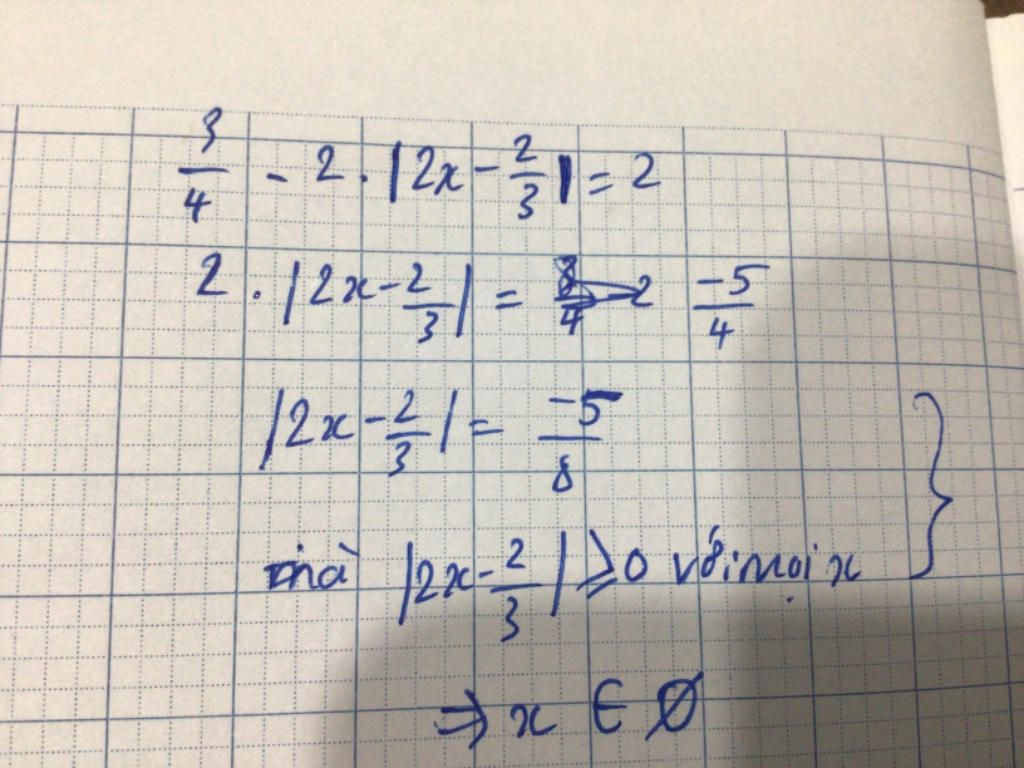 3/4 - 2 . |2x - 2/3| = 2
2 . |2x - 2/3| = -5/4
|2x - 2/3| = -5/8
mà |2x - 2/3| ⩾ 0 với mọi x }
⇒ x ∈ Ø